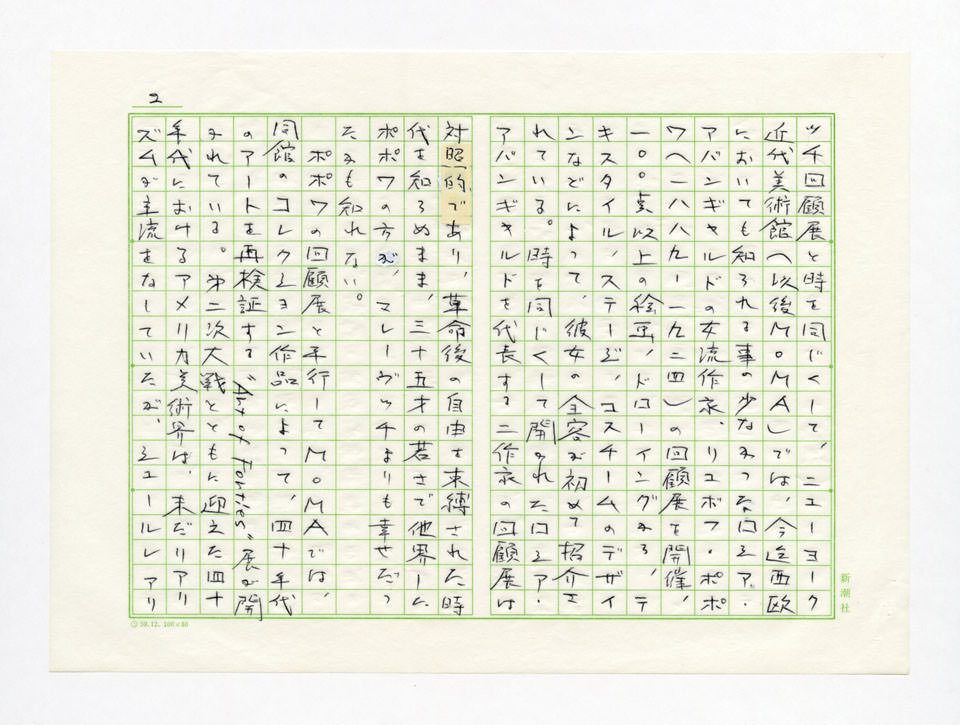 2
ツチ回顧展と時を同じくして、ニューヨーク
近代美術館(以後MOMA)では、今迄西欧
においても知られる事の少なかったロシア・
アバンギャルドの女流作家、リュボフ・ポポ
ワ(一八八九ー一九二四)の回顧展を開催、
一〇〇点以上の絵画、ドローイングから、テ
キスタイル、ステージ、コスチュームのデザイ
ンなどによって、彼女の全容が初めて招介さ
れている。時を同じくして開かれたロシア・
アバンギャルドを代表する二作家の回顧展は
対照的であり、革命後の自由を束縛された時
代を知らぬまま、三十五才の若さで他界した
ポポワの方が、マレーヴィッチよりも幸せだっ
たかも知れない。
ポポワの回顧展と平行してMOMAでは、
同館のコレクション作品によって、四十年代
のアートを再検証する“Art of Forties”展が開
かれている。第二次大戦とともに迎えた四十
年代におけるアメリカ美術界は、未だリアリ
ズムが主流をなしていたが、シュールレアリ
新潮社
59.12.100×80